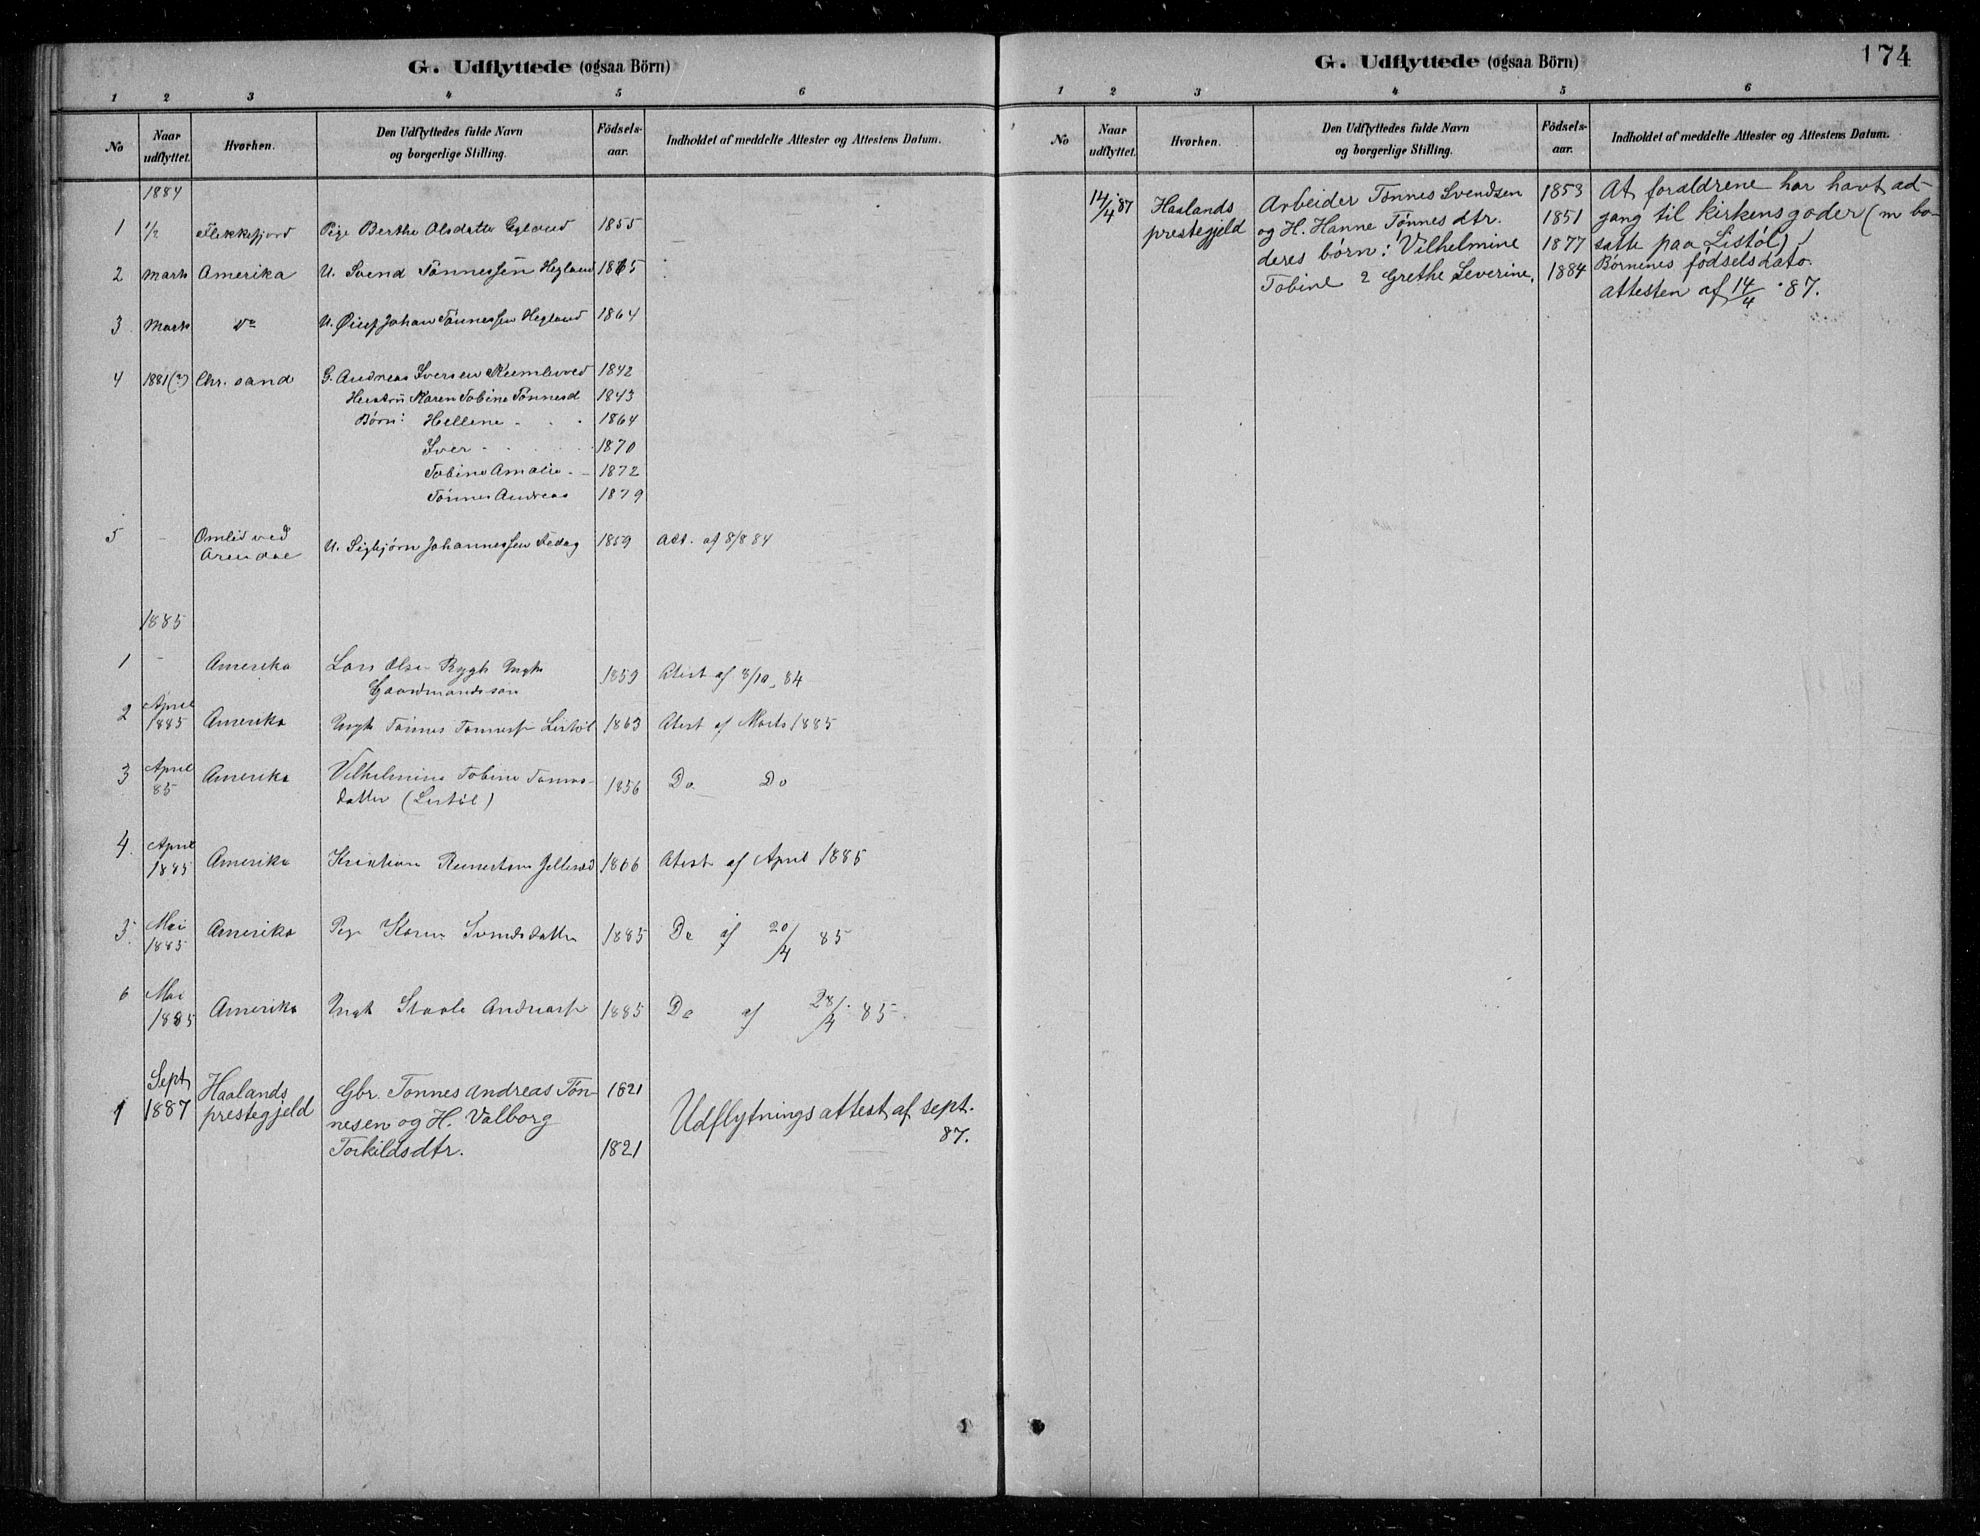 G. Udflyttede (ogsaa Börn)
1 2 3 4 5 6
No Naar udflyttet. Hvorhen. Den Udflyttedes fulde Navn og borgerlige Stilling. Födsels-aar. Indholdet af meddelte Attester og Attestens Datum.
1884
1 1/2 Flekkefjord Pige Berthe Olsdatter Egland 1855
2 Marts Amerika U. Svend Tönnessen Hegland 1865
3 Marts do U. Johan Tönnessen Hegland 1864
4 1881(?) Chr. sand G. Andreas Iversen 1842
Hustru Karen Tobine Tönnesd 1843
Börn: Hellene 1864
Iver 1870
Tobine Amalie 1872
Tönnes Andreas 1879
5 - Omlid ved
Arendal U. Sigbjørn Johannessen Fedog 1859 Att. af 8/8 84
1885
1 - Amerika Lars Olsen Rygh Ungk
Gaardmandssön 1859 Atest af 3/10 84
2 April
1885 Amerika Ungk Tönnes Tönness Listöl 1863 Atest af Marts 1885
3 April
85 Amerika Vilhelmine Tobine Tönnes-
datter (Listöl) 1856 Do Do
4. April
1885 Amerika Kristian Reinertsen 1866 Atest af April 1885
5. Mai
1885 Amerika Pige Karen Svendsdatter 1885 Do af 20/4 85
6 Mai
1885 Amerika Ungk Staale Andreass 1885 Do af 28/4 85.
1 Sept
1887 Haalands
prestegjeld Gbr. Tønnes Andreas Tøn- 1821
nesen og H. Valborg
Torkildsdtr. 1821 Udflytningsattest af sept.
87.
174
G. Udflyttede (ogsaa Börn)
1 2 3 4 5 6
No Naar udflyttet. Hvorhen. Den Udflyttedes fulde Navn og borgerlige Stilling. Födsels-aar. Indholdet af meddelte Attester og Attestens Datum.
14/4 87 Haalands
prestegjeld Arbeider Tønnes Svendsen 1853 At forældrene har havt ad-
og H. Hanne Tønnesdtr. 1851 gang til kirkens goder (m bo-
deres børn: Vilhelmine 1877 satte paa Listøl)
Tobine 2 Grethe Severine. 1884 Børnenes fødselsdato.
attesten af 14/4 87.